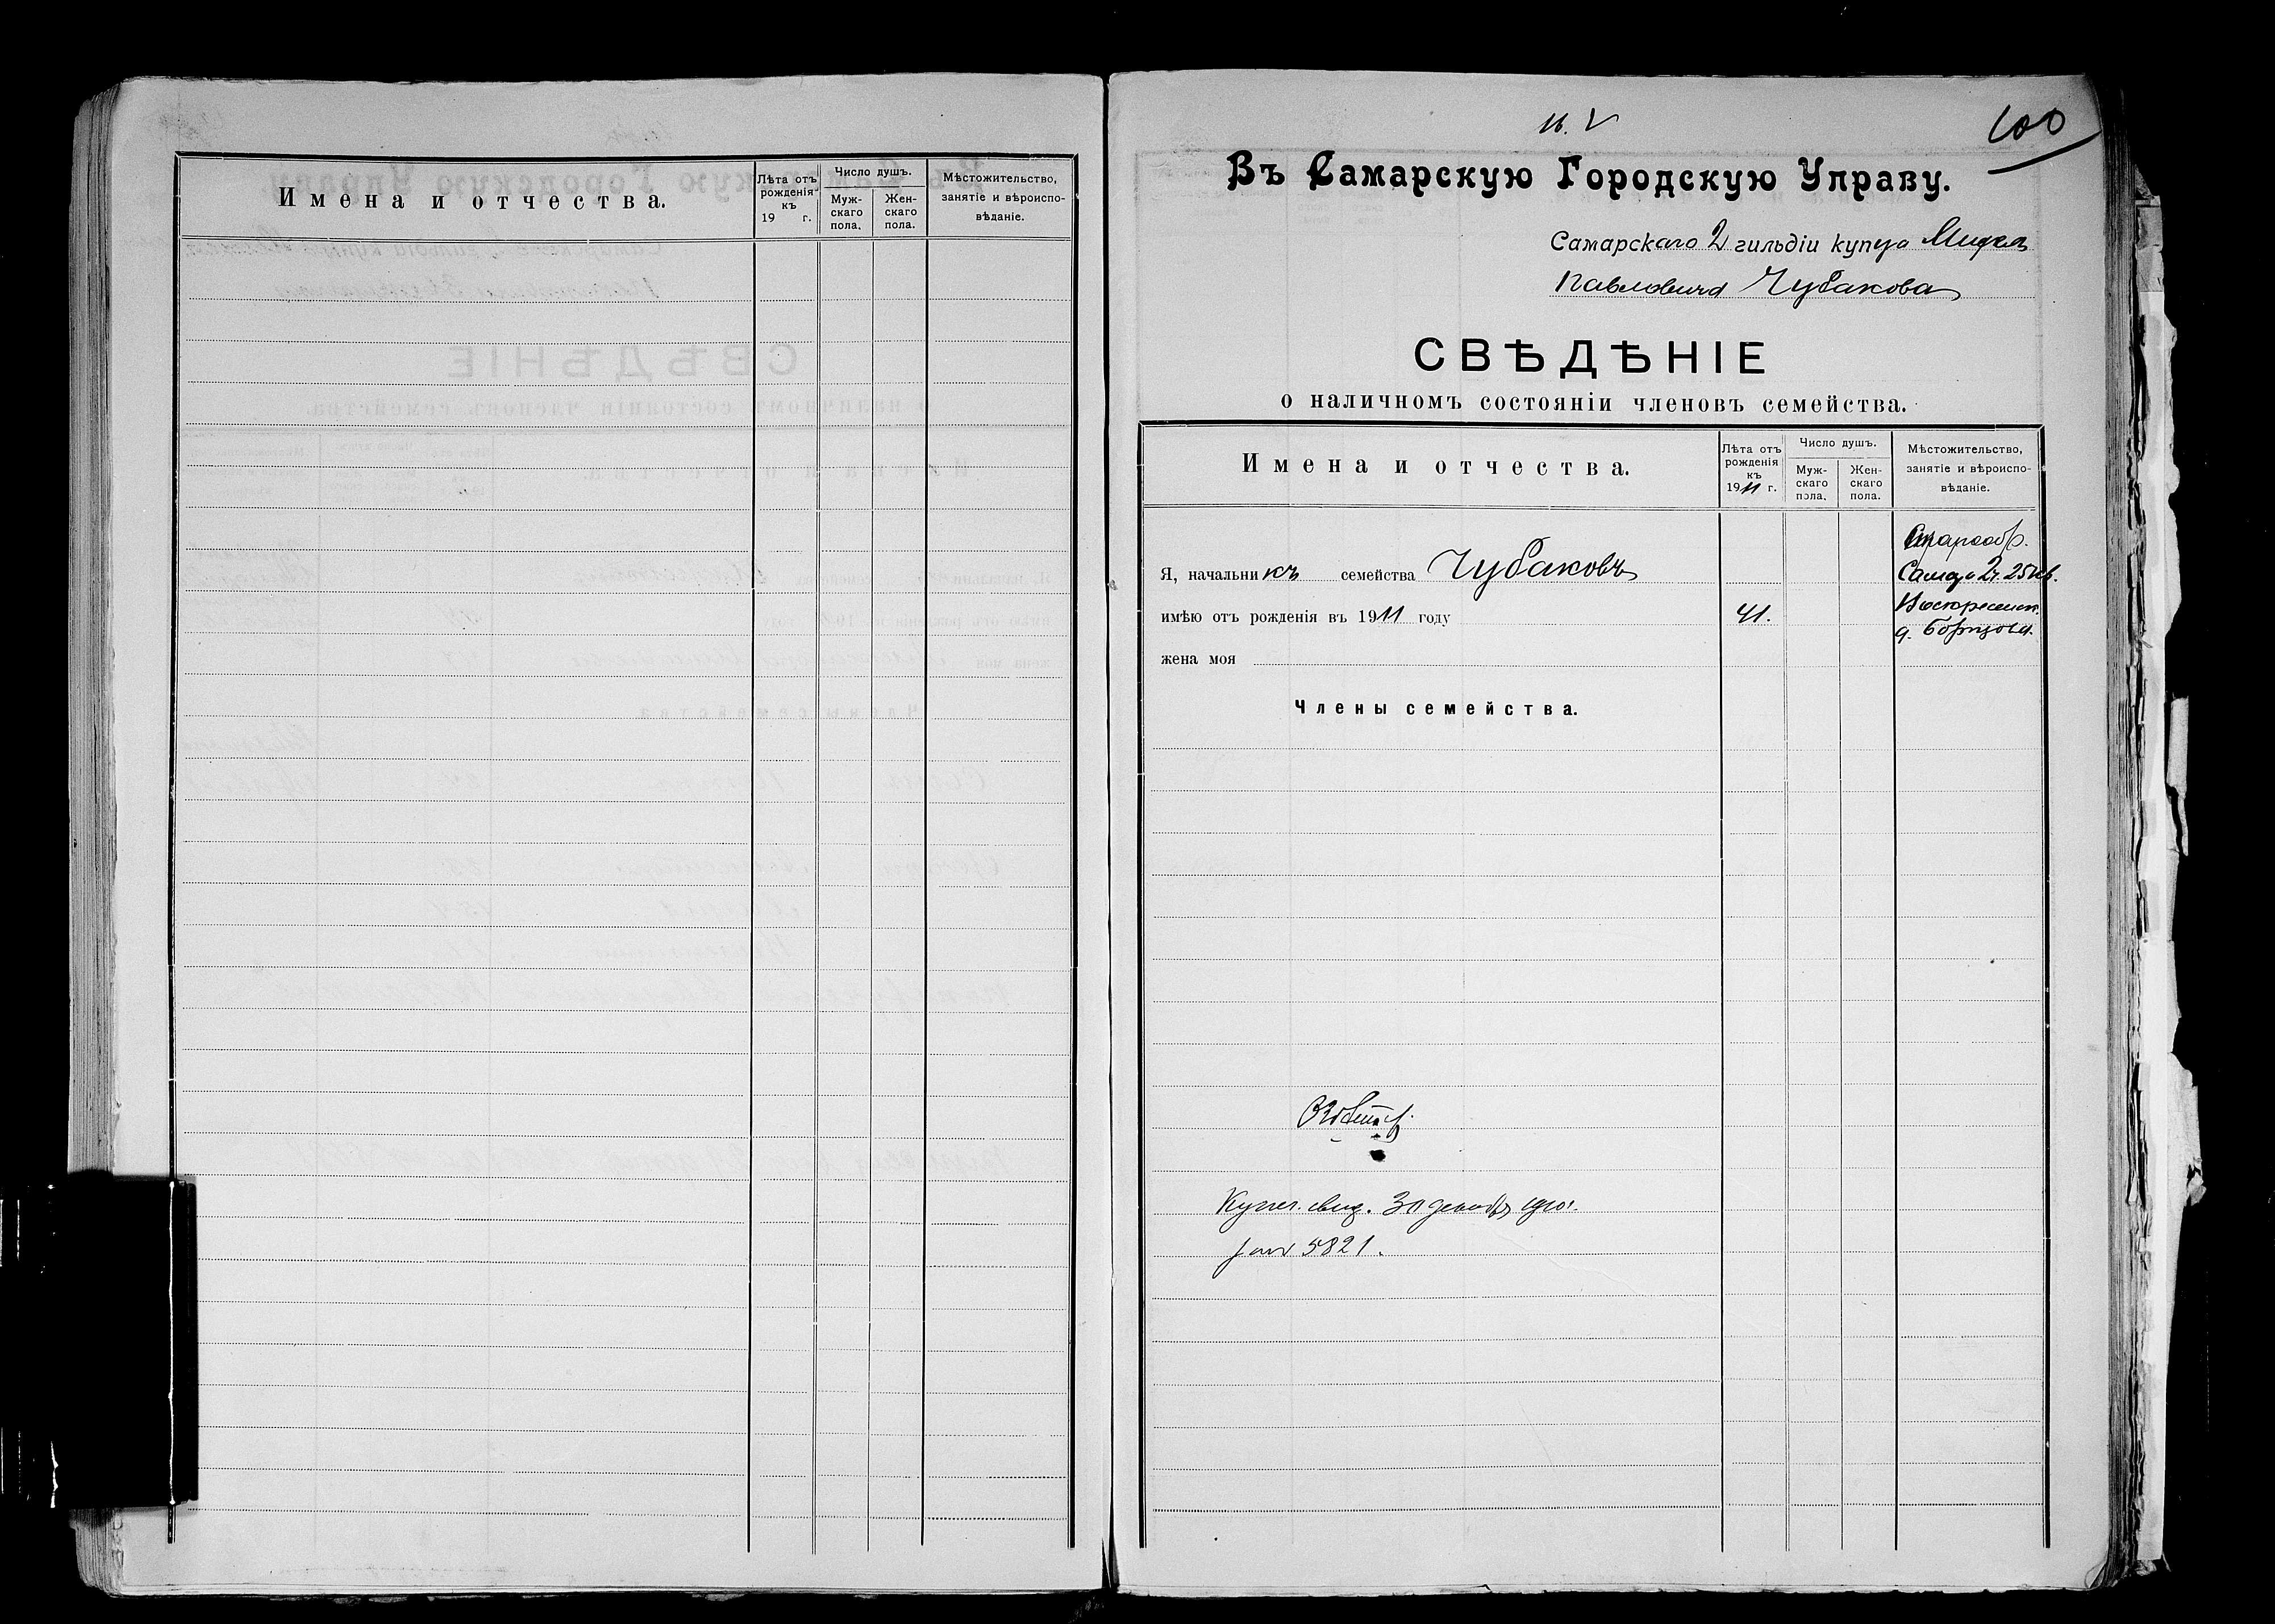 Имена и отчества.
Лѣта отъ рожденія къ 19 г.
Число душъ.
Муж-скаго пола.
Жен-скаго пола.
Мѣстожительство, занятіе и вѣроиспо-вѣданіе.
100
Въ Самарскую Городскую Управу.
Самарскаго 2 гильдіи купца
Павловича Чубакова
СВѢДѢНІЕ
о наличномъ состояніи членовъ семейства.
Имена и отчества.
Лѣта отъ рожденія къ 1911 г.
Число душъ.
Муж-скаго пола.
Жен-скаго пола.
Мѣстожительство, занятіе и вѣроиспо-вѣданіе.
Старообр.
Я, начальникъ семейства Чубаковъ
Самара 2ч. 25 кв.
имѣю отъ рожденія въ 1911 году 41.
Воскресенск.
д. Борисова
жена моя
Члены семейства.
Купеч. свид. 30 декабря 1910 г.
за № 5821.